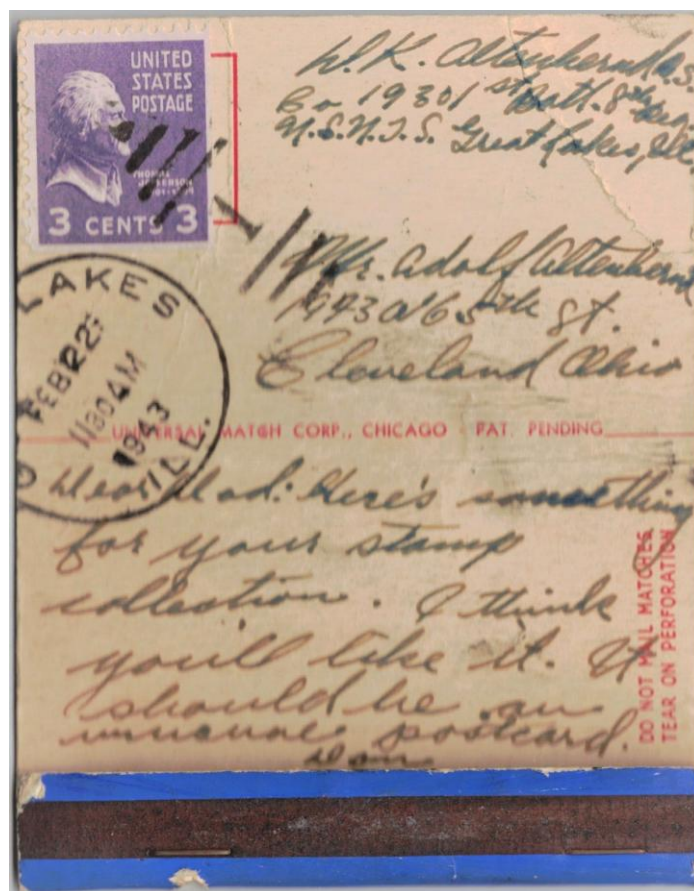 UNITED
STATES
POSTAGE
THOMAS
JEFFERSON
3 CENTS 3
W. K. Altenbernd A.S.
Co 19301 st Batt. 8th Reg.
U.S.N.T.S. Great Lakes, Ill.
LAKES
FEB 22
1130 AM
1943
ILL.
Mr. Adolf Altenbernd
65th St.
Cleveland Ohio
UNIVERSAL MATCH CORP., CHICAGO PAT. PENDING
Dear Dad: Here's something
for your stamp
collection. I think
you'll like it. It
should be an
unusual postcard.
DO NOT MAIL MATCHES,
TEAR ON PERFORATION